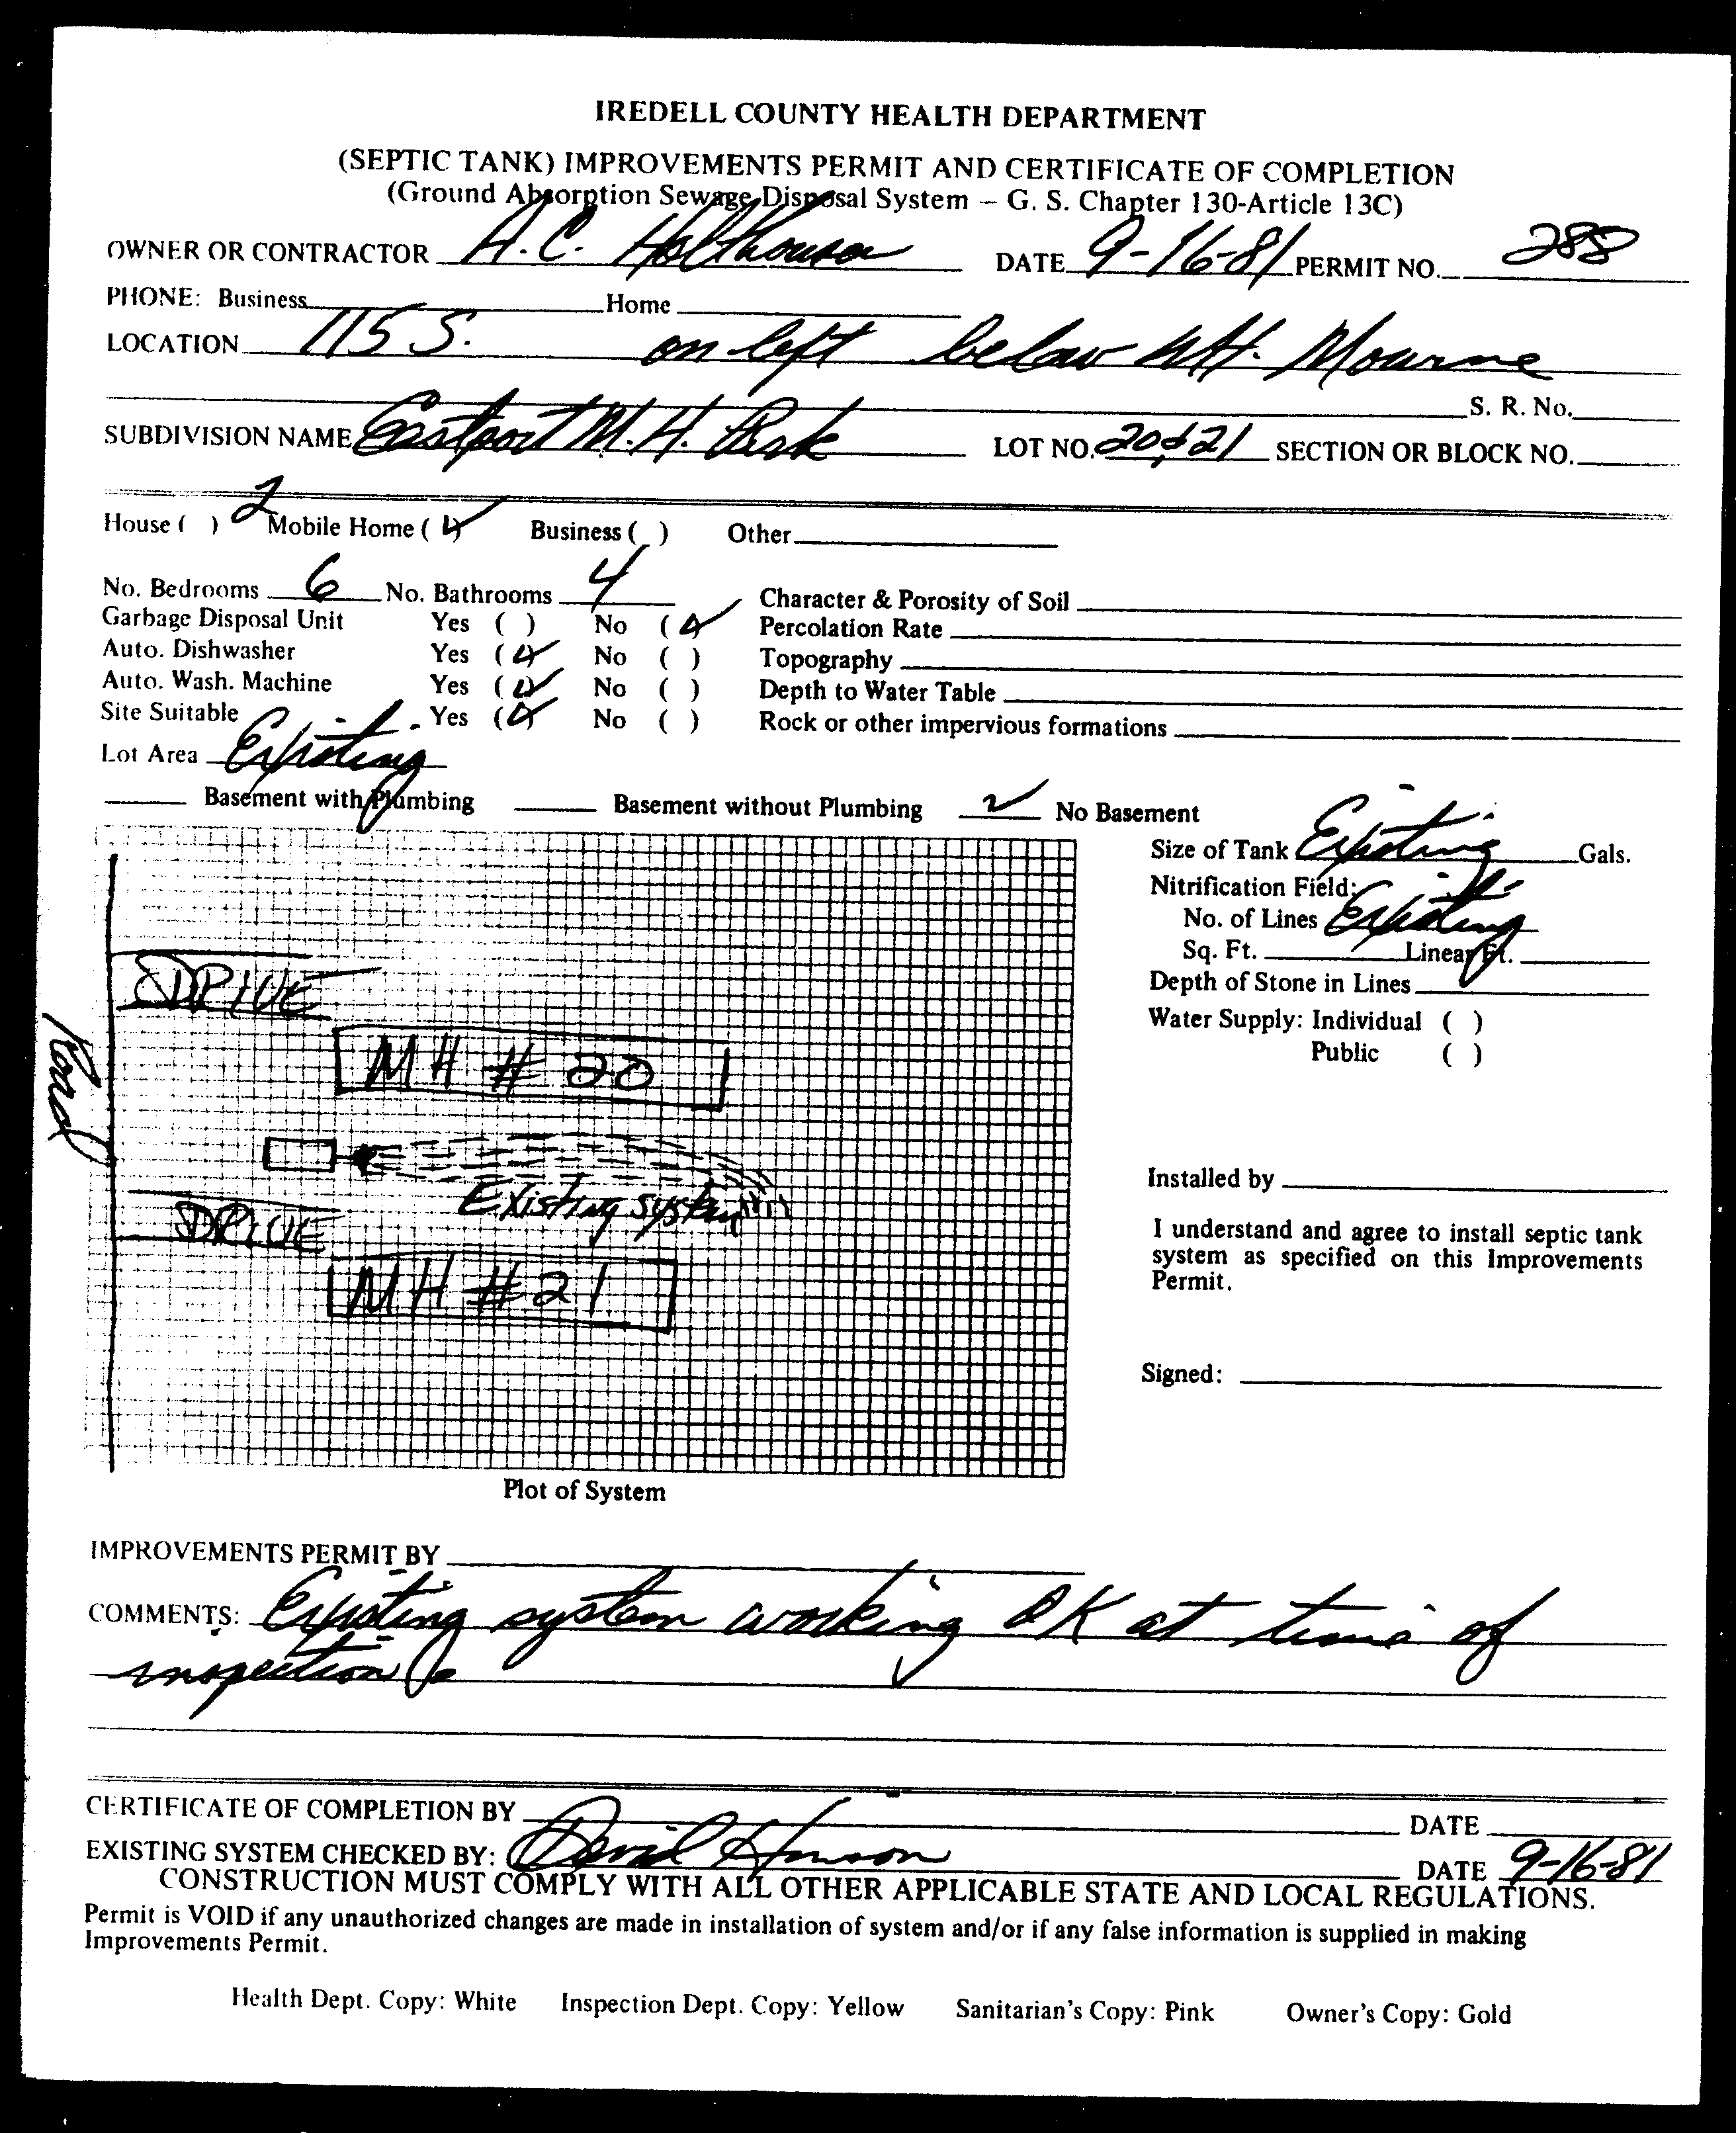 IREDELL COUNTY HEALTH DEPARTMENT
(SEPTIC TANK) IMPROVEMENTS PERMIT AND CERTIFICATE OF COMPLETION
(Ground Absorption Sewage Disposal System – G. S. Chapter 130-Article 13C)
OWNER OR CONTRACTOR A.C. Holthouser DATE 9-16-81 PERMIT NO. 288
PHONE: Business Home
LOCATION 115 S. on left below Mt. Mourne
S. R. No.
SUBDIVISION NAME Eastport M.H. Park LOT NO. 20 & 21 SECTION OR BLOCK NO.
House ( ) 2 Mobile Home (✓) Business ( ) Other
No. Bedrooms 6 No. Bathrooms 4 Character & Porosity of Soil
Garbage Disposal Unit Yes ( ) No (✓) Percolation Rate
Auto. Dishwasher Yes (✓) No ( ) Topography
Auto. Wash. Machine Yes (✓) No ( ) Depth to Water Table
Site Suitable Yes (✓) No ( ) Rock or other impervious formations
Lot Area Existing
Basement with Plumbing Basement without Plumbing ✓ No Basement
Size of Tank Existing Gals.
Nitrification Field:
No. of Lines Existing
Sq. Ft. Linear Ft.
Depth of Stone in Lines
Water Supply: Individual ( )
Public ( )
Installed by
I understand and agree to install septic tank
system as specified on this Improvements
Permit.
Signed:
Road
DRIVE
MH # 20
Existing system
DRIVE
MH # 21
Plot of System
IMPROVEMENTS PERMIT BY
COMMENTS: Existing system working OK at time of
inspection.
CERTIFICATE OF COMPLETION BY DATE
EXISTING SYSTEM CHECKED BY: David Hinson DATE 9-16-81
CONSTRUCTION MUST COMPLY WITH ALL OTHER APPLICABLE STATE AND LOCAL REGULATIONS.
Permit is VOID if any unauthorized changes are made in installation of system and/or if any false information is supplied in making
Improvements Permit.
Health Dept. Copy: White Inspection Dept. Copy: Yellow Sanitarian's Copy: Pink Owner's Copy: Gold